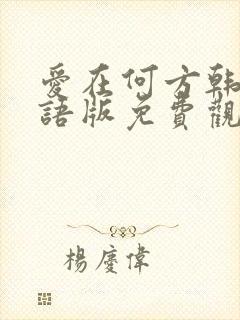 愛在何方韩
語版免費觀
楊慶偉